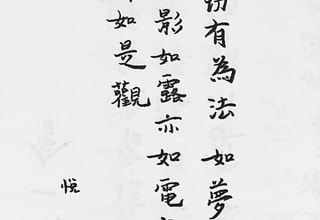 切有為法如夢
影如露亦如電
如是觀
悅